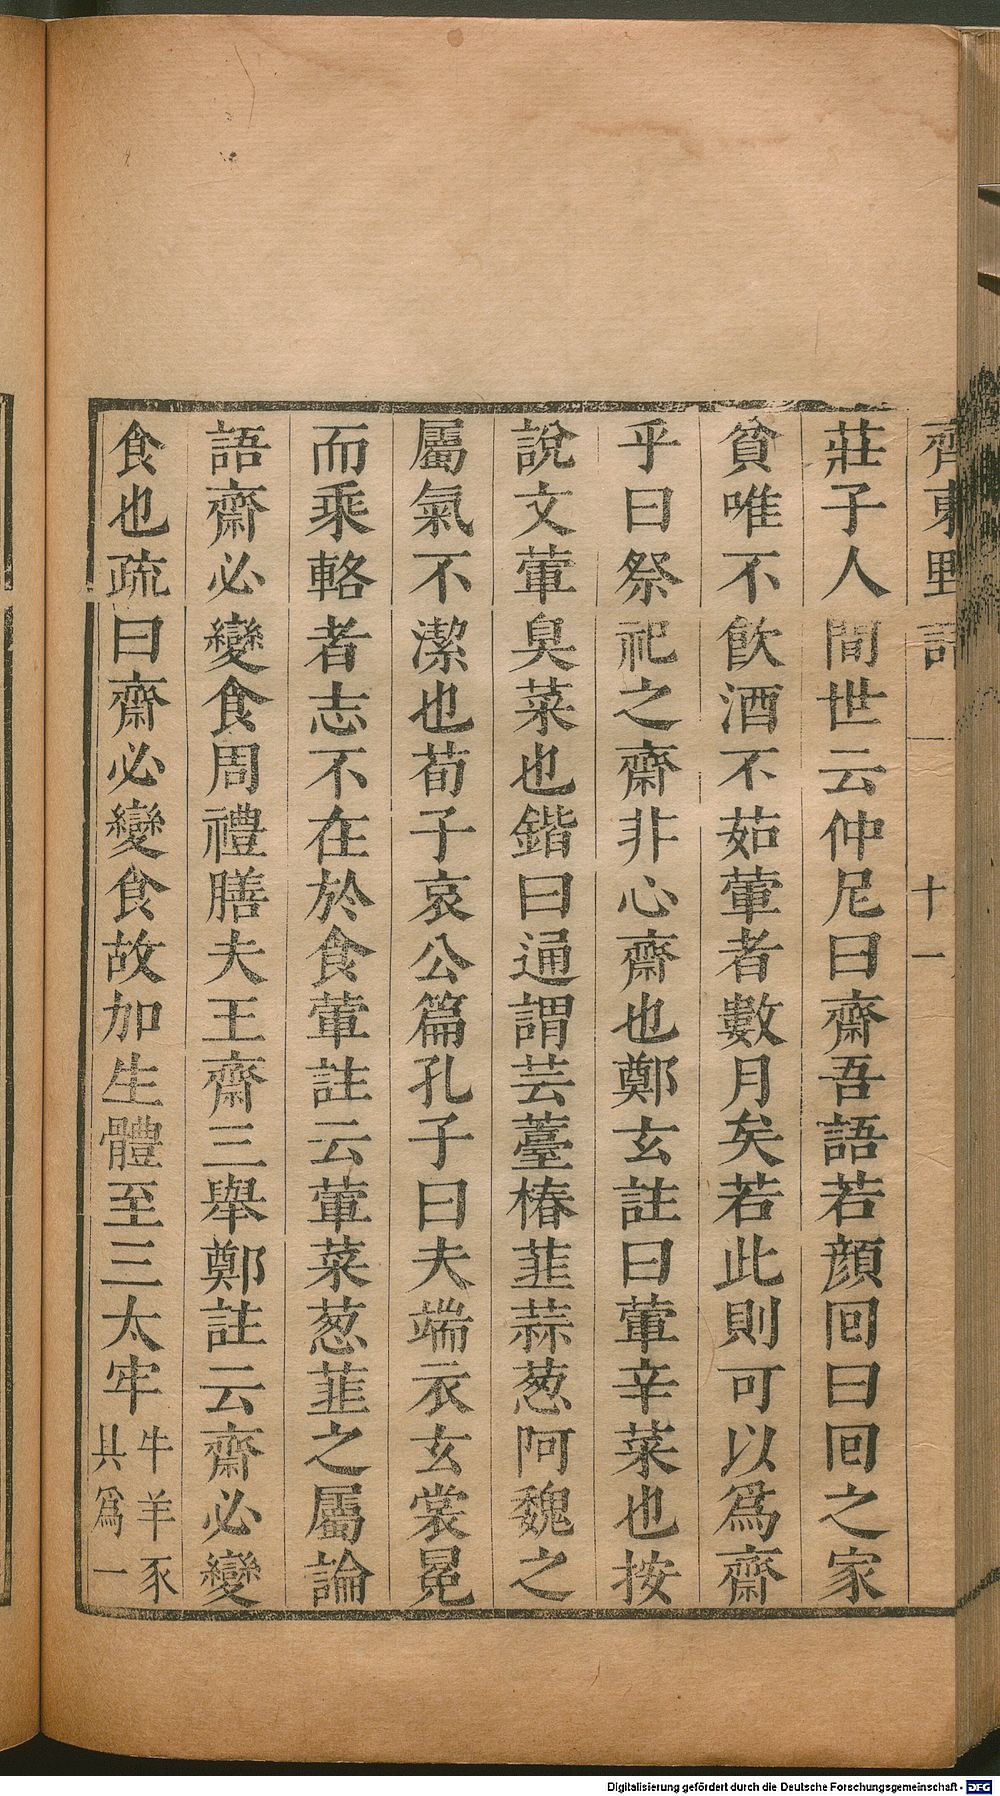 齊東野語
十一
莊子人間世云仲尼曰齋吾語若顏回曰回之家
貧唯不飲酒不茹葷者數月矣若此則可以爲齋
乎曰祭祀之齋非心齋也鄭玄註曰葷辛菜也按
說文葷臭菜也鍇曰通謂芸薹椿韮蒜葱阿魏之
屬氣不潔也荀子哀公篇孔子曰夫端衣玄裳冕
而乘輅者志不在於食葷註云葷菜葱韮之屬論
語齋必變食周禮膳夫王齋三舉鄭註云齋必變
食也疏曰齋必變食故加生體至三太牢
牛羊豕
具爲一
Digitalisierung gefördert durch die Deutsche Forschungsgemeinschaft - DFG